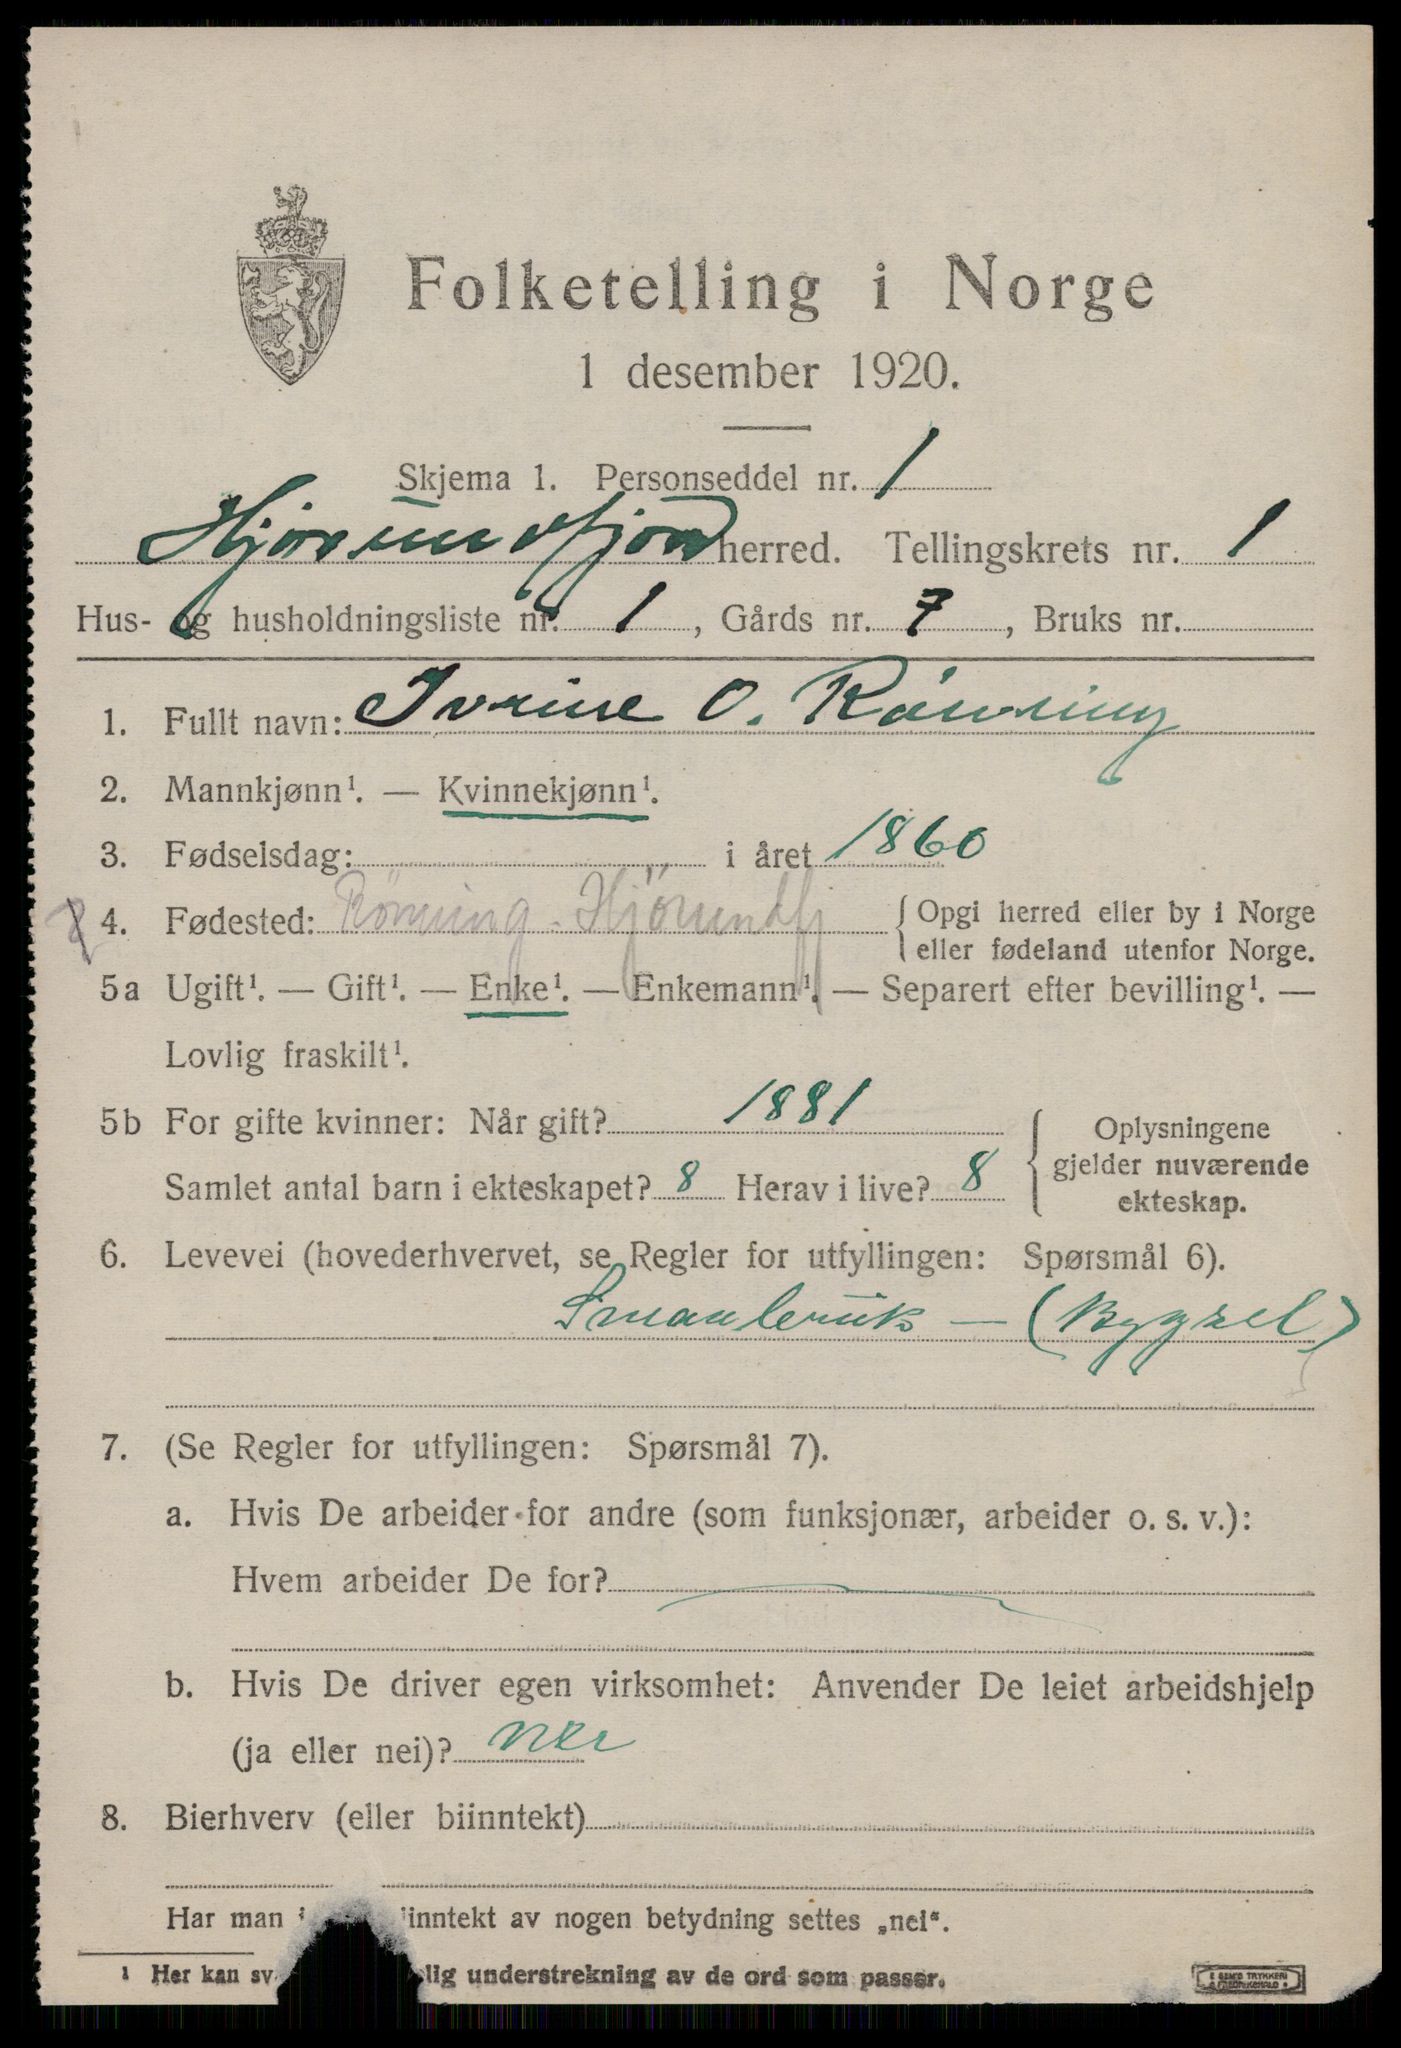 Folketelling i Norge
1 desember 1920.
Skjema 1. Personseddel nr. 1
Hjörundfjord herred. Tellingskrets nr. 1
Hus- og husholdningsliste nr. 1, Gårds nr. 7, Bruks nr.
1. Fullt navn: Ivrine O. Rönning
2. Mannkjønn¹. — Kvinnekjønn¹.
3. Fødselsdag: i året 1860
4. Fødested: Rönning - Hjörundfj { Opgi herred eller by i Norge
eller fødeland utenfor Norge.
5a Ugift¹. — Gift¹. — Enke¹. — Enkemann¹. — Separert efter bevilling¹. —
Lovlig fraskilt¹.
5b For gifte kvinner: Når gift? 1881
Samlet antal barn i ekteskapet? 8 Herav i live? 8
Oplysningene
gjelder nuværende
ekteskap.
6. Levevei (hovederhvervet, se Regler for utfyllingen: Spørsmål 6).
Smaabruk — (Bygsel)
7. (Se Regler for utfyllingen: Spørsmål 7).
a. Hvis De arbeider for andre (som funksjonær, arbeider o. s. v.):
Hvem arbeider De for?
b. Hvis De driver egen virksomhet: Anvender De leiet arbeidshjelp
(ja eller nei)? nei
8. Bierhverv (eller biinntekt)
Har man i iinntekt av nogen betydning settes „nei“.
¹ Her kan sv lig understrekning av de ord som passer.